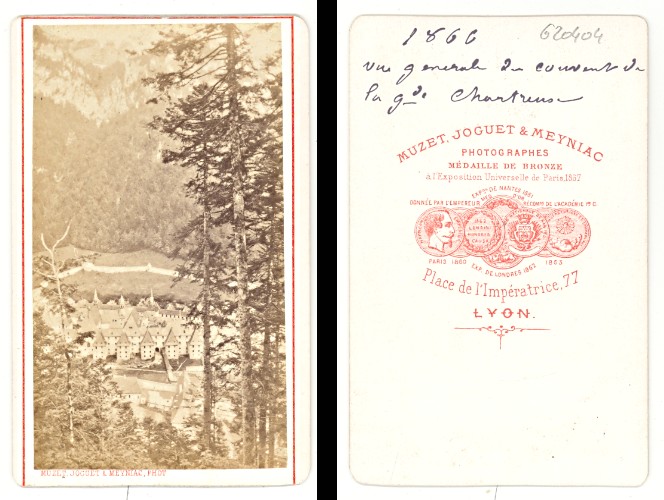 MUZET, JOGUET & MEYNIAC, PHOT
1866
620404
vue generale du couvent de
la gde Chartreuse
MUZET, JOGUET & MEYNIAC
PHOTOGRAPHES
MÉDAILLE DE BRONZE
à l'Exposition Universelle de Paris, 1867
EXPon DE NANTES 1861
DONNÉE PAR L'EMPEREUR
RÉCOMPse DE L'ACADÉMIE Nle C
PARIS 1860
EXP. DE LONDRES 1862
1863
Place de l'Impératrice, 77
LYON.